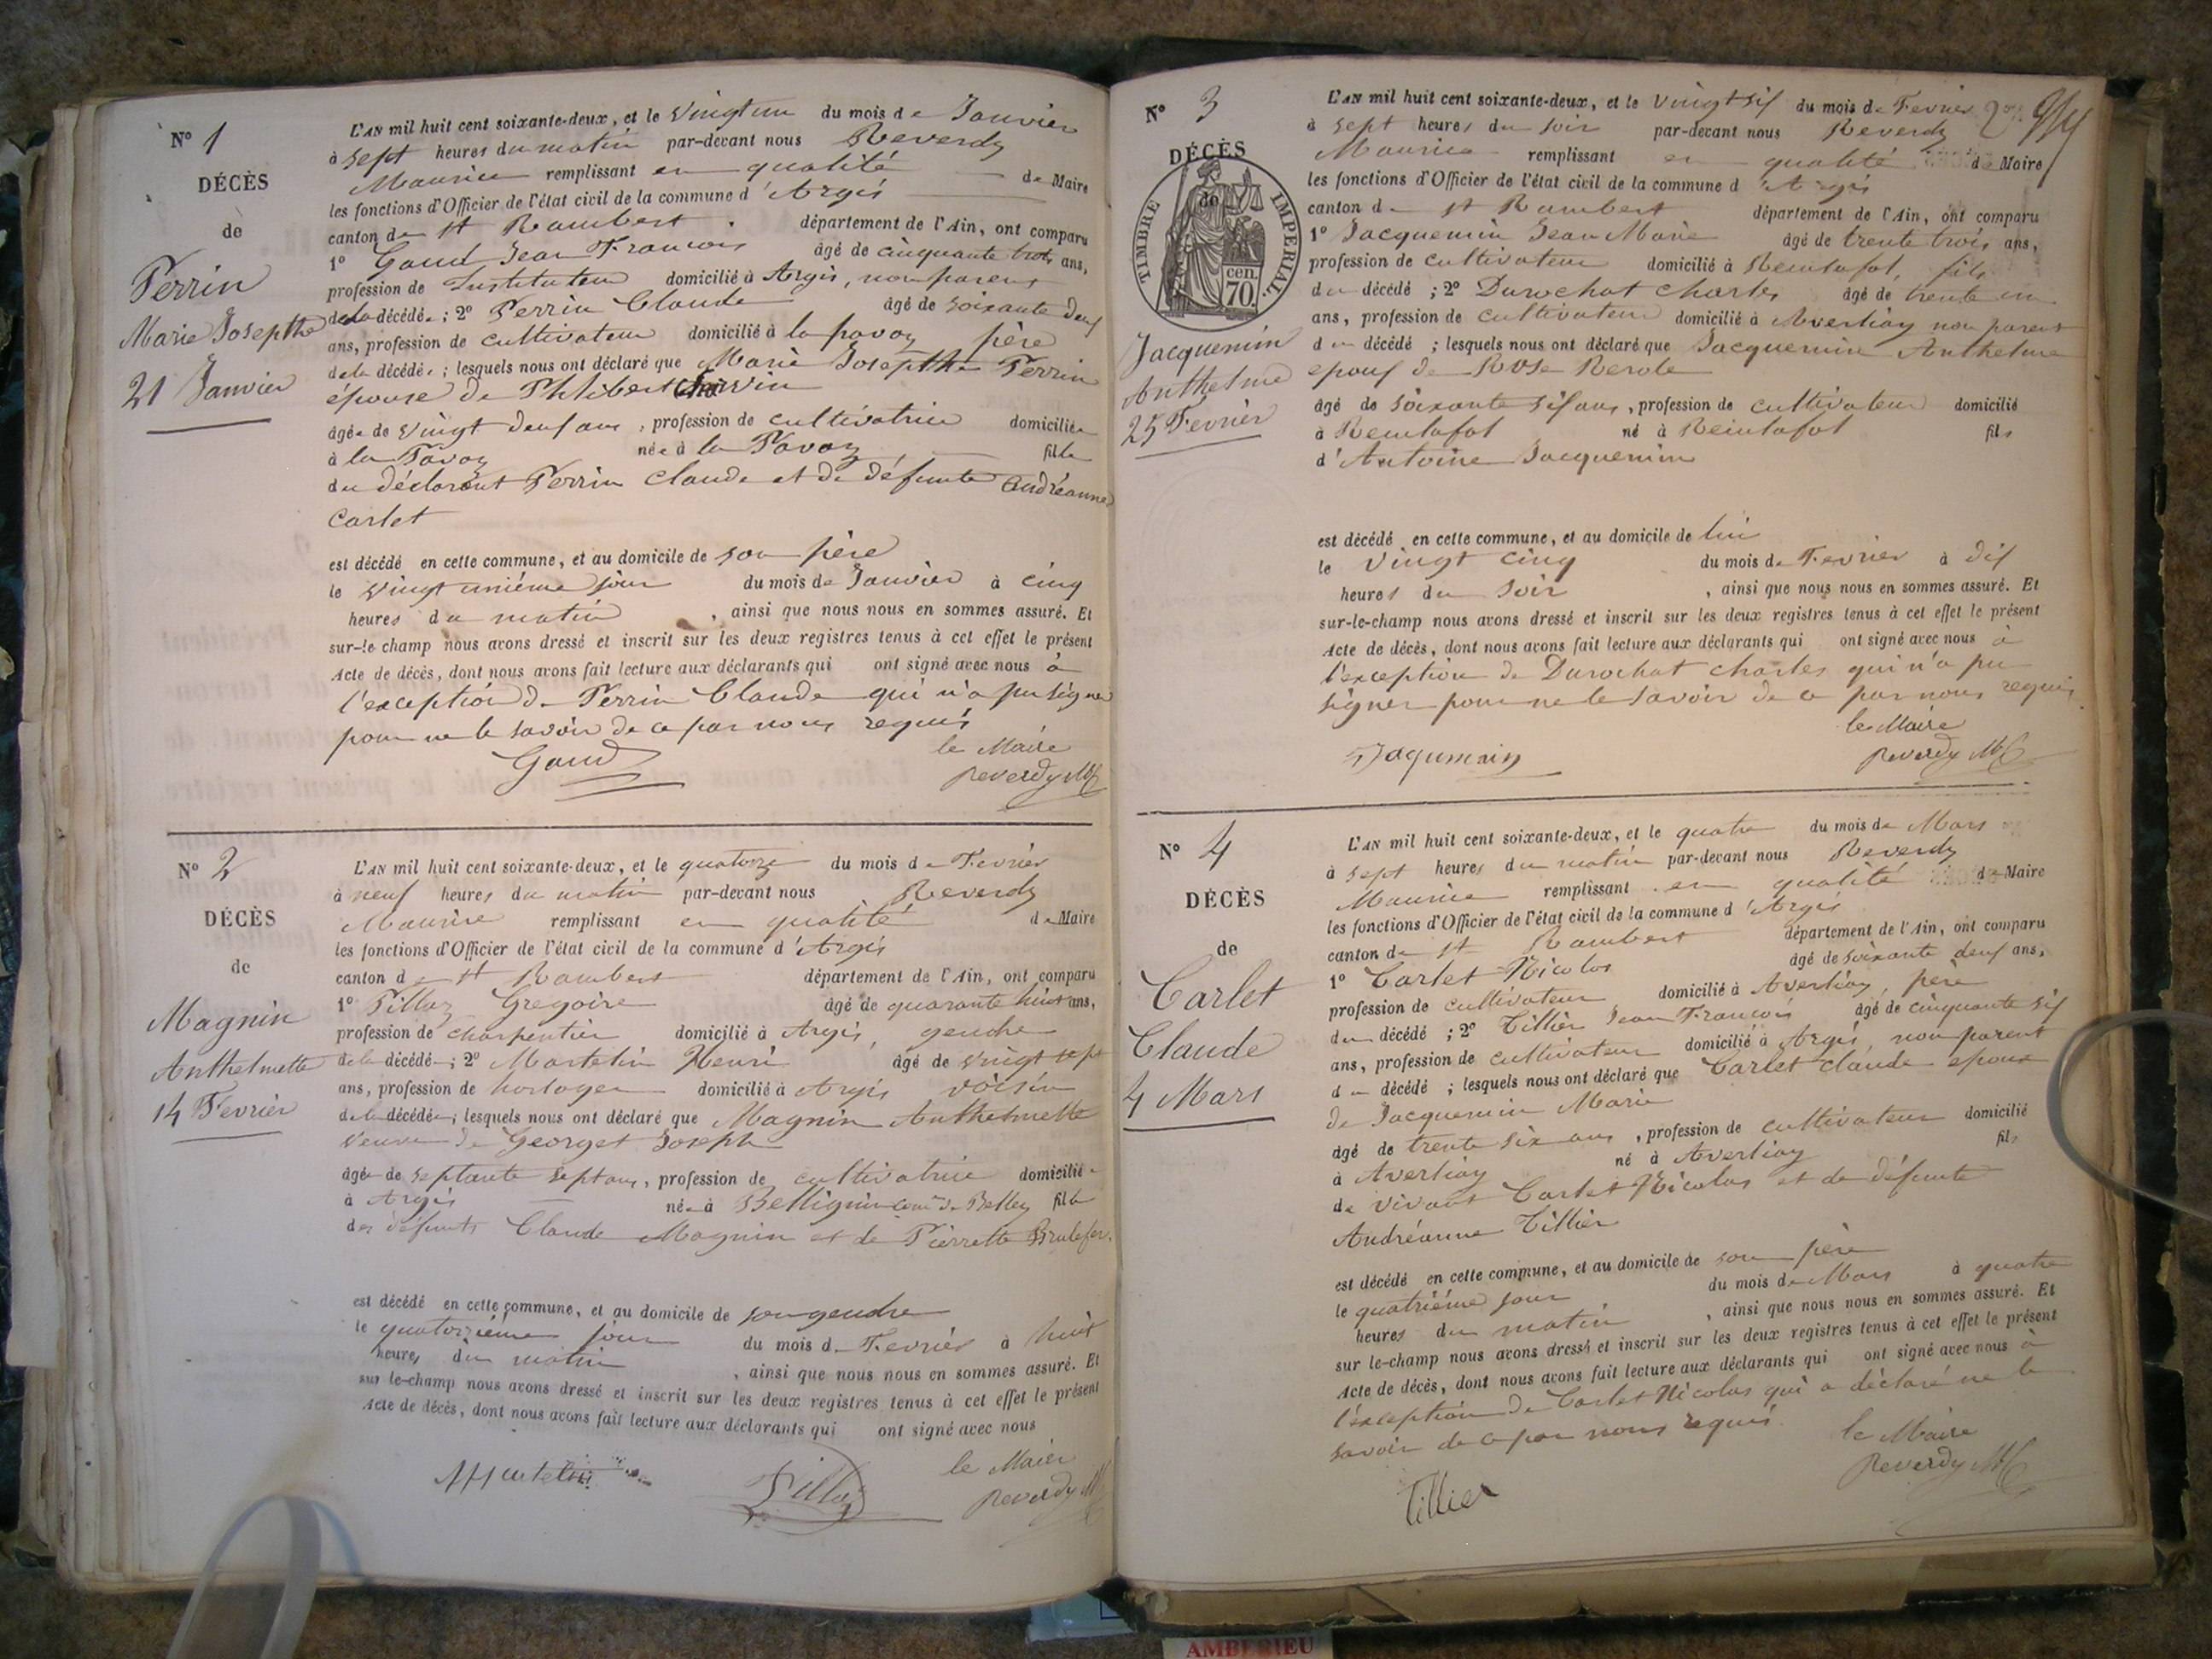 N° 1
DÉCÈS
de
Perrin
Marie Josepthe
21 Janvier
L'AN mil huit cent soixante-deux, et le vingt un du mois de Janvier
à sept heures du matin par-devant nous Reverdy
Maurice remplissant en qualité de Maire
les fonctions d'Officier de l'état civil de la commune d'Argis
canton de st Rambert département de l'Ain, ont comparu
1° Goud Jean Francois âgé de cinquante trois ans,
profession de Instituteur domicilié à Argis, non parent
de la décédée ; 2° Perrin Claude âgé de soixante deux
ans, profession de cultivateur domicilié à la pavoz père
de la décédée ; lesquels nous ont déclaré que Marie Josepthe Perrin
épouse de Philibert Charvin
âgée de vingt deux ans, profession de cultivatrice domiciliée
à la Pavoz née à la Pavoz fille
du déclarant Perrin Claude et de défunte Andréanne
Carlet
est décédé en cette commune, et au domicile de son père
le vingt unième jour du mois de Janvier à cinq
heures du matin, ainsi que nous nous en sommes assuré. Et
sur-le champ nous avons dressé et inscrit sur les deux registres tenus à cet effet le présent
Acte de décès, dont nous avons fait lecture aux déclarants qui ont signé avec nous à
l'exception de Perrin Claude qui n'a pu signer
pour ne le savoir de ce par nous requis
le Maire
Goud Reverdy
N° 2
DÉCÈS
de
Magnin
Anthelmette
14 Fevrier
L'AN mil huit cent soixante-deux, et le quatorze du mois de Fevrier
à neuf heures du matin par-devant nous Reverdy
Maurice remplissant en qualité de Maire
les fonctions d'Officier de l'état civil de la commune d'Argis
canton de st Rambert département de l'Ain, ont comparu
1° Pilloz Gregoire âgé de quarante huit ans,
profession de charpentier domicilié à Argis, gendre
de la décédée ; 2° Martelin Henri âgé de vingt sept
ans, profession de horloger domicilié à Argis voisin
de la décédée ; lesquels nous ont déclaré que Magnin Anthelmette
veuve de Georget Joseph
âgée de septante sept ans, profession de cultivatrice domiciliée
à Argis née à Bellignin comne de Belley fille
des défunts Claude Magnin et de Pierrette Brulefer.
est décédé en cette commune, et au domicile de son gendre
le quatorzième jour du mois de Fevrier à huit
heures du matin, ainsi que nous nous en sommes assuré. Et
sur le-champ nous avons dressé et inscrit sur les deux registres tenus à cet effet le présent
Acte de décès, dont nous avons fait lecture aux déclarants qui ont signé avec nous
le Maier
Martelin Pilloz Reverdy
N° 3
DÉCÈS
de
TIMBRE IMPERIAL.
cen.
70.
Jacquemin
Anthelme
25 Fevrier
L'AN mil huit cent soixante-deux, et le vingt six du mois de Fevrier
à sept heures du soir par-devant nous Reverdy
Maurice remplissant en qualité de Maire
les fonctions d'Officier de l'état civil de la commune d'Argis
canton de st Rambert département de l'Ain, ont comparu
1° Jacquemin Jean Marie âgé de trente trois ans,
profession de cultivateur domicilié à Reculafol, fils
du décédé ; 2° Durochat Charles âgé de trente un
ans, profession de cultivateur domicilié à Averliaz non parent
du décédé ; lesquels nous ont déclaré que Jacquemin Anthelme
epoux de Rose Rerole
âgé de soixante six ans, profession de cultivateur domicilié
à Reculafol né à Reculafol fils
d'Antoine Jacquemin
est décédé en cette commune, et au domicile de lui
le vingt cinq du mois de Fevrier à dix
heures du soir, ainsi que nous nous en sommes assuré. Et
sur-le-champ nous avons dressé et inscrit sur les deux registres tenus à cet effet le présent
Acte de décès, dont nous avons fait lecture aux déclarants qui ont signé avec nous à
l'exception de Durochat Charles qui n'a pu
signer pour ne le savoir de ce par nous requis
le Maire
Jaqumain Reverdy
N° 4
DÉCÈS
de
Carlet
Claude
4 Mars
L'AN mil huit cent soixante-deux, et le quatre du mois de Mars
à sept heures du matin par-devant nous Reverdy
Maurice remplissant en qualité de Maire
les fonctions d'Officier de l'état civil de la commune d'Argis
canton de st Rambert département de l'Ain, ont comparu
1° Carlet Nicolas âgé de soixante deux ans,
profession de cultivateur domicilié à Averliaz, père
du décédé ; 2° Tillier Jean Francois âgé de cinquante six
ans, profession de cultivateur domicilié à Argis, non parent
du décédé ; lesquels nous ont déclaré que Carlet Claude epoux
de Jacquemin Marie
âgé de trente six ans, profession de cultivateur domicilié
à Averliaz né à Averliaz fils
de vivant Carlet Nicolas et de défunte
Andréanne Tillier
est décédé en cette commune, et au domicile de son père
le quatrième jour du mois de Mars à quatre
heures du matin, ainsi que nous nous en sommes assuré. Et
sur le-champ nous avons dressé et inscrit sur les deux registres tenus à cet effet le présent
Acte de décès, dont nous avons fait lecture aux déclarants qui ont signé avec nous à
l'exception de Carlet Nicolas qui a déclaré ne le
savoir de ce par nous requis.
le Maire
Tillier Reverdy
AMBERIEU